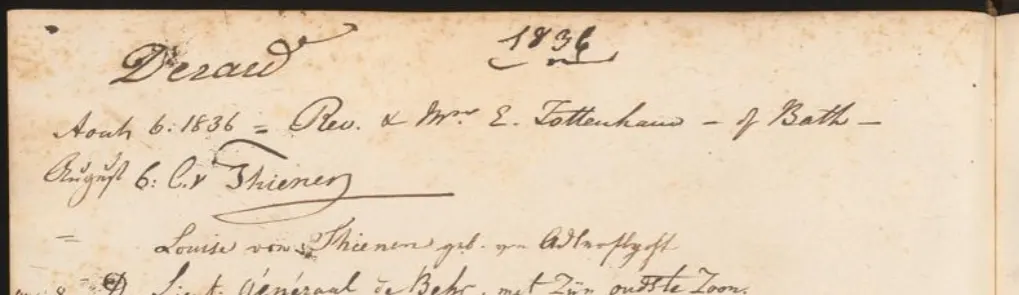 1836
Aout 6. 1836 = Rev. & Mrs E. Tottenham – of Bath –
August 6: C. v Thienen
= Louise von Thienen geb. von Adlerflycht
8 = Lieut. Général de Behr, met Zijn oudste Zoon.